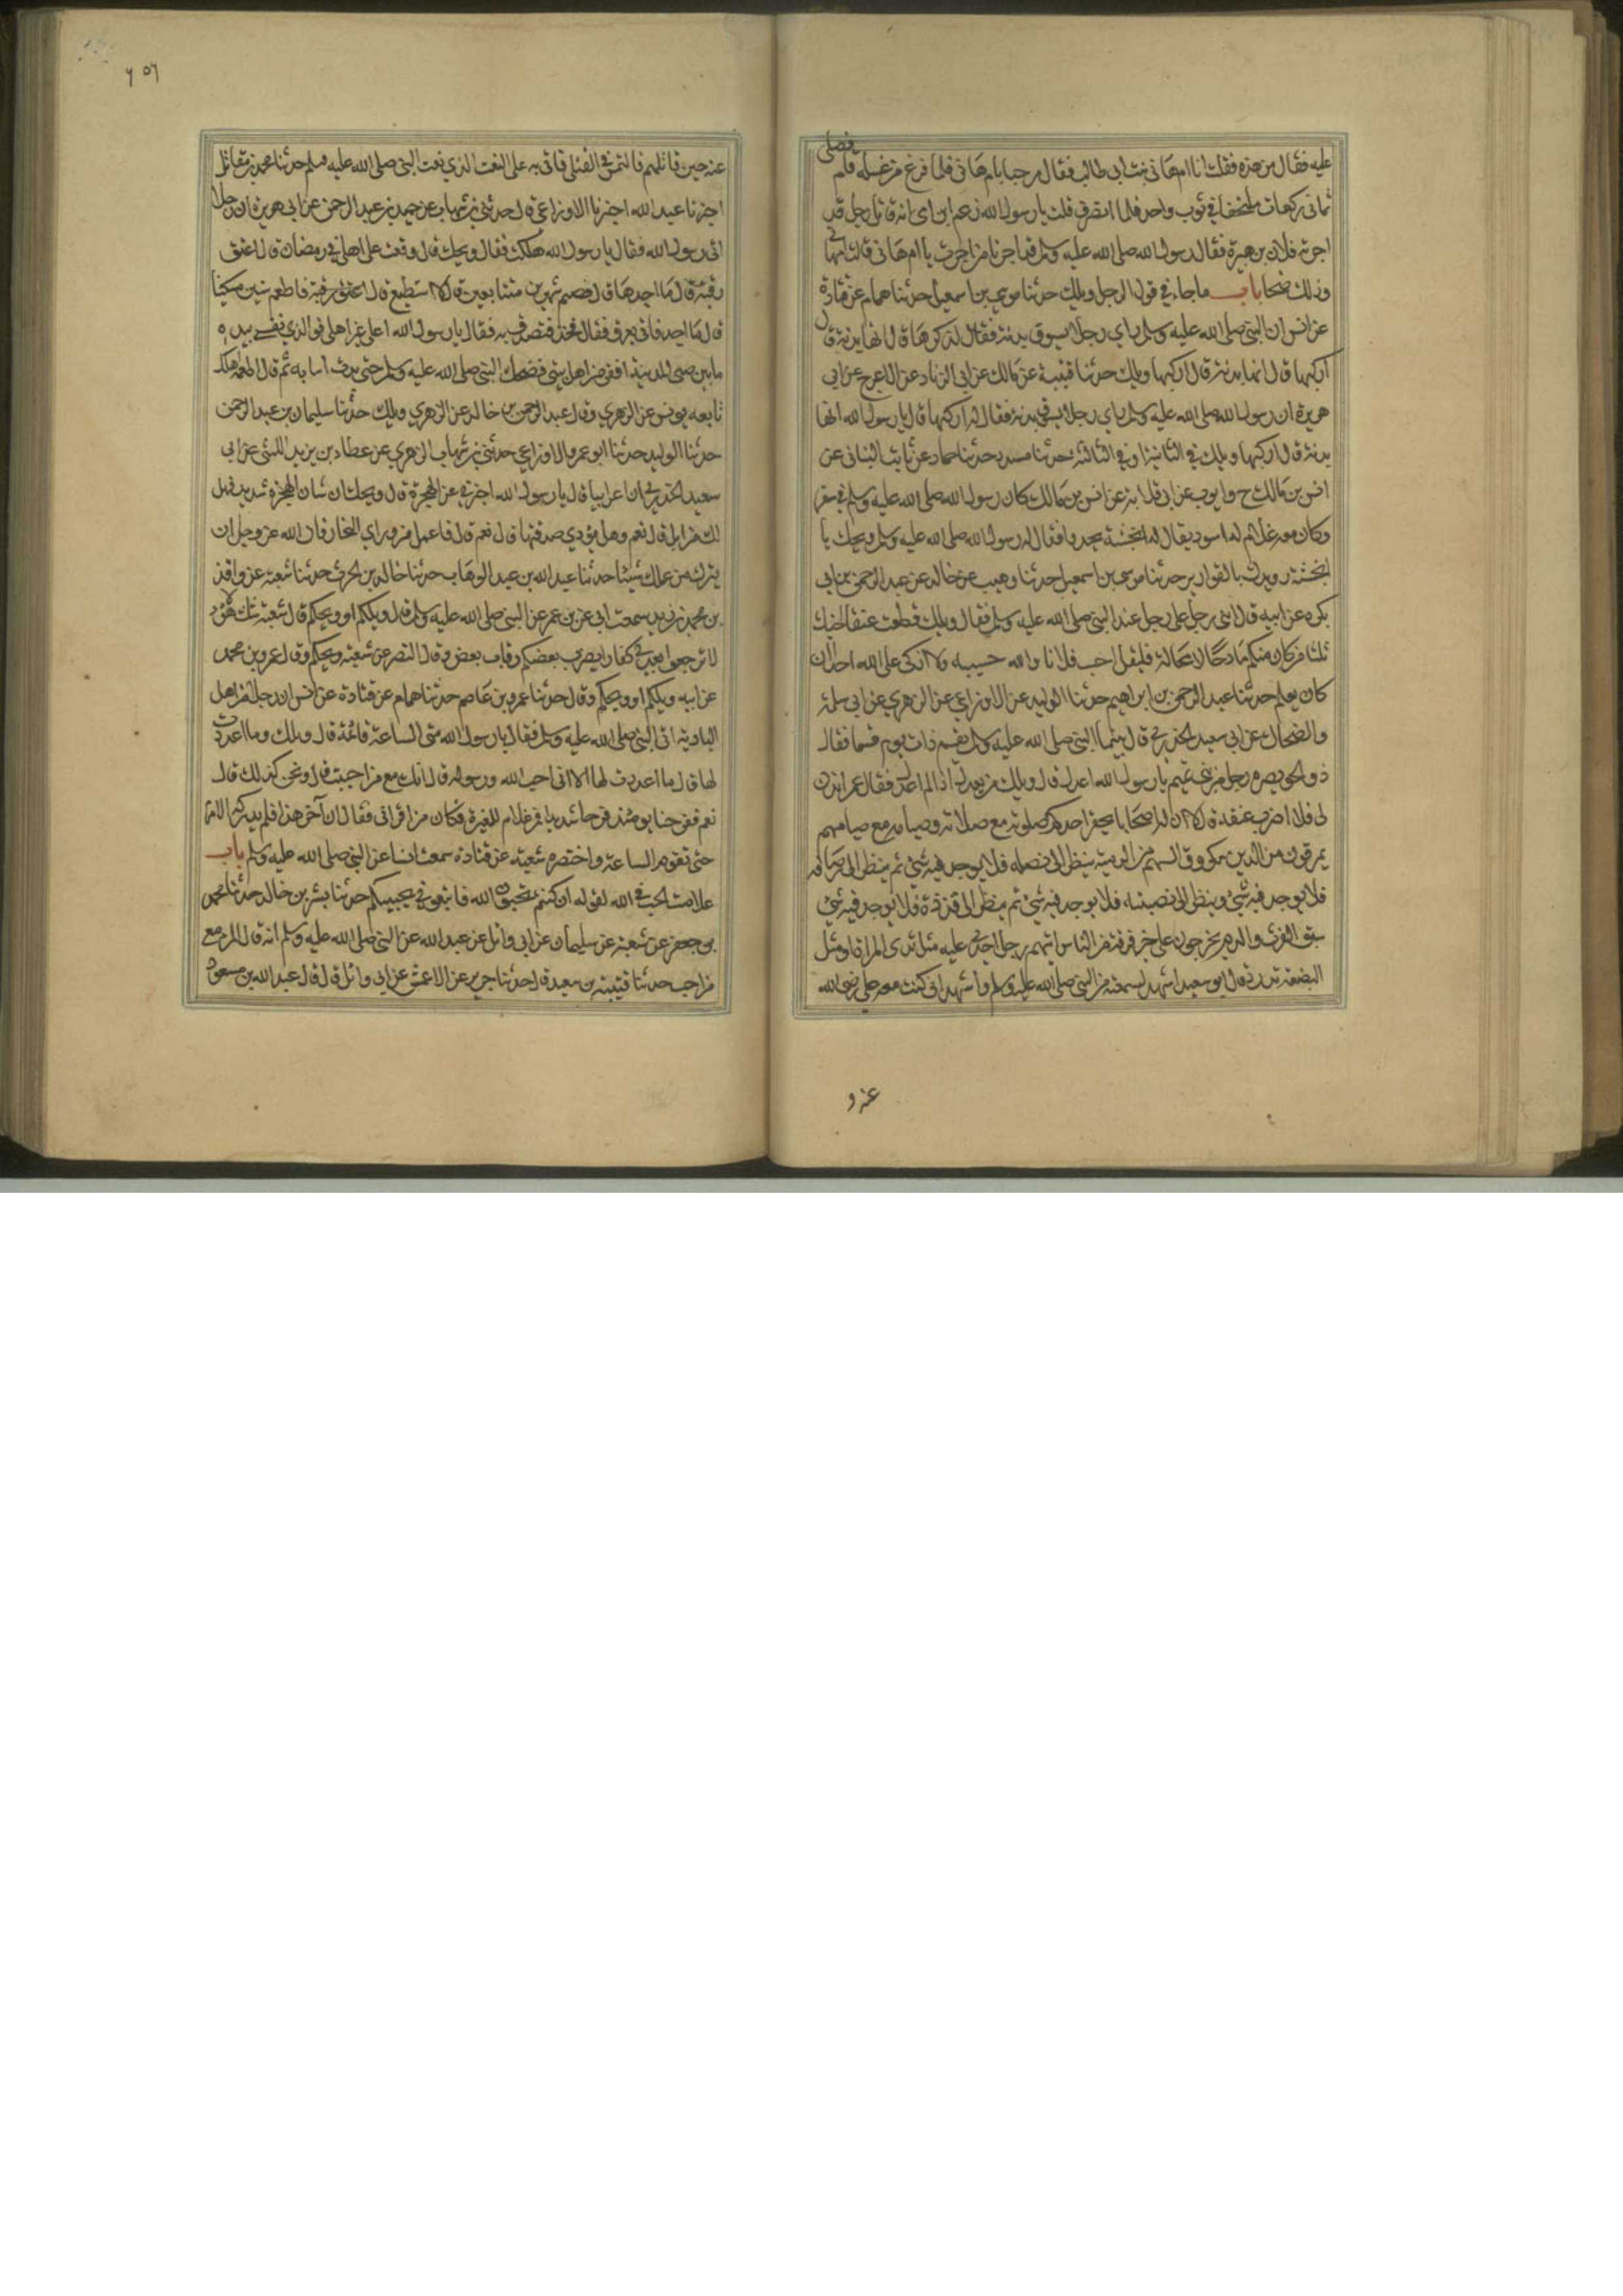 عليه فقال من هذه فقلت انا ام هانى بنت ابى طالب فقال مرحبا بام هانى فلما فرغ من غسله قام فصلى
ثمانى ركعات ملتحفا فى ثوب واحد فلما انصرف قلت يا رسول الله زعم ابن امى انه قاتل رجل قد
اجرته فلان بن هبيرة فقال رسول الله صلى الله عليه وسلم قد اجرنا من اجرت يا ام هانى قالت ام هانى
وذلك ضحا باب ما جاء فى قول الرجل ويلك حدثنا موسى بن اسمعيل حدثنا همام عن قتادة
عن انس ان النبى صلى الله عليه وسلم راى رجلا يسوق بدنة فقال له اركبها قال انها بدنة قال
اركبها قال انها بدنة قال اركبها ويلك حدثنا قتيبة عن مالك عن ابى الزناد عن الاعرج عن ابى
هريرة ان رسول الله صلى الله عليه وسلم راى رجلا يسوق بدنة فقال له اركبها قال يا رسول الله انها
بدنة قال اركبها ويلك فى الثانية او فى الثالثة حدثنا مسدد حدثنا حماد عن ثابت البنانى عن
انس بن مالك ح وايوب عن ابى قلابة عن انس بن مالك كان رسول الله صلى الله عليه وسلم فى سفر
وكان معه غلام له اسود يقال له انجشة يحدو فقال له رسول الله صلى الله عليه وسلم ويحك يا
انجشة رويدك بالقوارير حدثنا موسى بن اسمعيل حدثنا وهيب عن خالد عن عبد الرحمن بن ابى
بكره عن ابيه قال اثنى رجل على رجل عند النبى صلى الله عليه وسلم فقال ويلك قطعت عنق اخيك
ثلثا من كان منكم مادحا لا محالة فليقل احسب فلانا والله حسيبه ولا ازكى على الله احدا ان
كان يعلم حدثنا عبد الرحمن بن ابراهيم حدثنا الوليد عن الاوزاعي عن الزهري عن ابى سلمة
والضحاك عن ابى سعيد الخدرى قال بينما النبى صلى الله عليه وسلم يقسم ذات يوم قسما فقال
ذو الخويصره رجل من بنى تميم يا رسول الله اعدل قال ويلك من يعدل اذا لم اعدل فقال عمر ائذن
لى فلاضرب عنقه قال لا ان له اصحابا يحقر احدكم صلوته مع صلاتهم وصيامه مع صيامهم
يمرقون من الدين كمروق السهم من الرمية ينظر الى نصله فلا يوجد فيه شئ ثم ينظر الى رصافه
فلا يوجد فيه شئ وينظر الى نضيه فلا يوجد فيه شئ ثم ينظر الى قذذه فلا يوجد فيه شئ
سبق الفرث والدم يخرجون على خير فرقة من الناس ايتهم رجل احدى يديه مثل ثدى المراة او مثل
البضعة تدردر قال ابو سعيد اشهد لسمعته من النبى صلى الله عليه وسلم واشهد انى كنت مع على رضى الله
عنه و
٦٥٦
عنه حين قاتلهم فالتمس فى القتلى فاتى به على النعت الذي نعت النبى صلى الله عليه وسلم حدثنا محمد بن مقاتل
اخبرنا عبد الله اخبرنا الاوزاعي قال حدثنى بن شهاب عن حميد بن عبد الرحمن عن ابى هريرة ان رجلا
اتى رسول الله فقال يا رسول الله هلكت فقال ويحك قال وقعت على اهلى فى رمضان قال اعتق
رقبة قال ما اجدها قال فصم شهرين متتابعين قال لا استطيع قال فاطعم ستين مسكينا
قال ما اجد فاتى بعرق فقال خذه فتصدق به فقال يا رسول الله اعلى غير اهلى فوالذي نفسى بيده
ما بين طنبى المدينة افقر من اهل بيتى فضحك النبى صلى الله عليه وسلم حتى بدت انيابه ثم قال اطعمه اهلك
تابعه يونس عن الزهري وقال عبد الرحمن بن خالد عن الزهري ويلك حدثنا سليمان بن عبد الرحمن
حدثنا الوليد حدثنا ابو عمرو الاوزاعي حدثنى بن شهاب الزهري عن عطاء بن يزيد الليثى عن ابى
سعيد الخدرى ان اعرابيا قال يا رسول الله اخبرنى عن الهجرة قال ويحك ان شان الهجرة شديد فهل
لك من ابل قال نعم وهل تؤدي صدقتها قال نعم قال فاعمل من وراء البحار فان الله عز وجل لن
يترك من عملك شيئا حدثنا عبد الله بن عبد الوهاب حدثنا خالد بن الحرث حدثنا شعبة عن واقد
بن محمد بن زيد سمعت ابى عن بن عمر عن النبى صلى الله عليه وسلم قال ويلكم او ويحكم قال شعبة شك هو
لا ترجعوا بعدى كفارا يضرب بعضكم رقاب بعض وقال النضر عن شعبة ويحكم وقال عمر بن محمد
عن ابيه ويلكم او ويحكم وقال حدثنا عمرو بن عاصم حدثنا همام عن قتادة عن انس ان رجلا من اهل
البادية اتى النبى صلى الله عليه وسلم فقال يا رسول الله متى الساعة قائمة قال ويلك وما اعددت
لها قال ما اعددت لها الا انى احب الله ورسوله قال انك مع من احببت قال ونحن كذلك قال
نعم ففرحنا يومئذ فرحا شديدا فمر غلام للمغيرة وكان من اقرانى فقال ان اخر هذا فلم يدركه الهرم
حتى تقوم الساعة واختصره شعبة عن قتادة سمعت انسا عن النبى صلى الله عليه وسلم باب
علامت الحب فى الله لقوله ان كنتم تحبون الله فاتبعونى يحببكم حدثنا بشر بن خالد حدثنا محمد
بن جعفر عن شعبة عن سليمان عن ابى وائل عن عبد الله عن النبى صلى الله عليه وسلم انه قال المرء مع
من احب حدثنا قتيبة بن سعيد قال حدثنا جرير عن الاعمش عن ابى وائل قال قال عبد الله بن مسعود